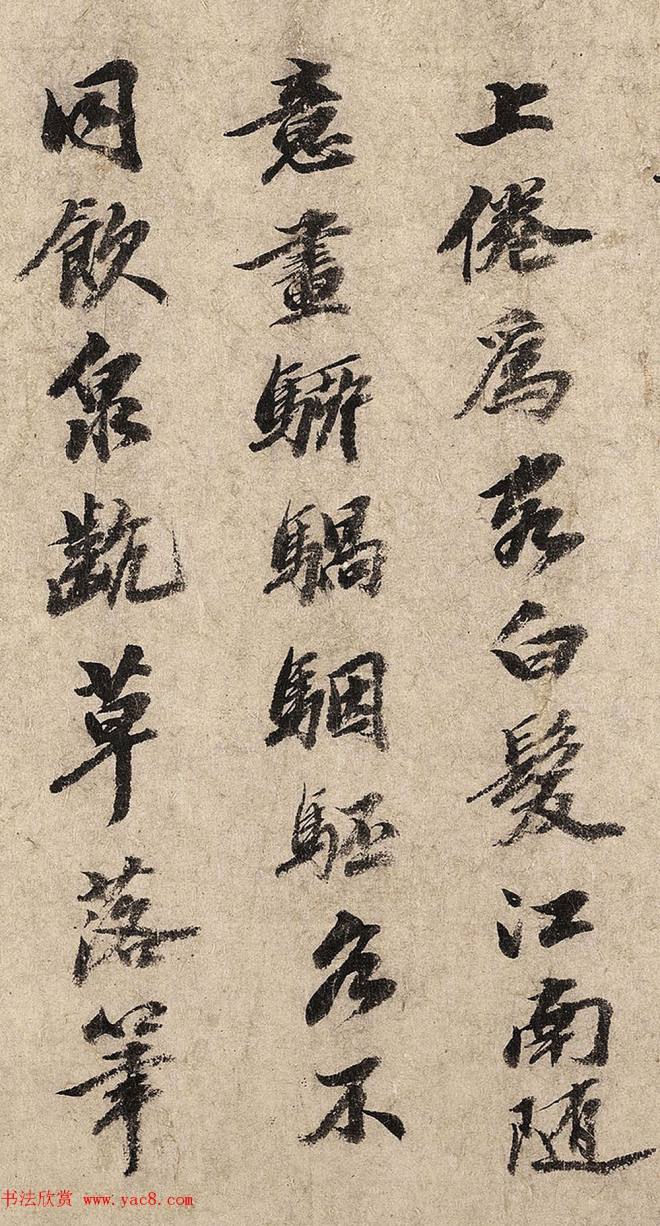 上倦為客白髮江南隨
意畫騧駰駓各不
同飲泉齕草落筆
书法欣赏 www.yac8.com